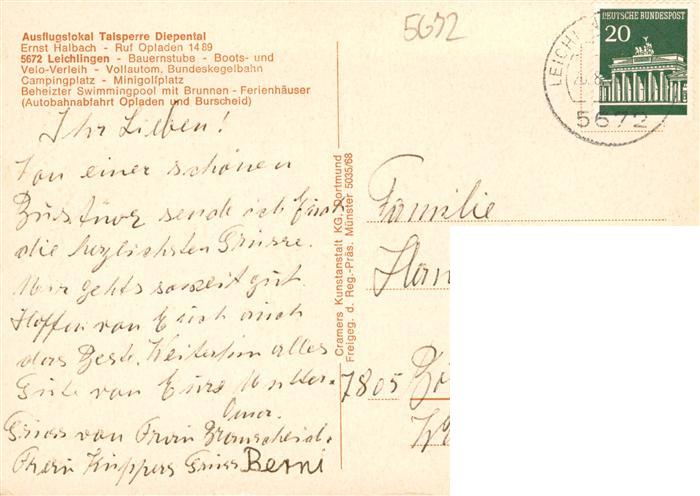 Ausflugslokal Talsperre Diepental
Ernst Halbach - Ruf Opladen 14 89
5672 Leichlingen - Bauernstube - Boots- und
Velo-Verleih - Vollautom. Bundeskegelbahn
Campingplatz - Minigolfplatz
Beheizter Swimmingpool mit Brunnen - Ferienhäuser
(Autobahnabfahrt Opladen und Burscheid)
5672
DEUTSCHE BUNDESPOST
20
LEICHL
5672
Ihr Lieben!
Von einer schönen
sende ich Euch
die herzlichsten Grüsse.
Mir gehts soweit gut.
Hoffen von Euch auch
das Beste. Weiterhin alles
Gute von Eure Mutter.
Oma.
Gruss von Frau
Frau Küppers Gruss Berni
Cramers Kunstanstalt KG, Dortmund
Freigeg. d. Reg.-Präs. Münster 5035/68
Familie
Han
7805